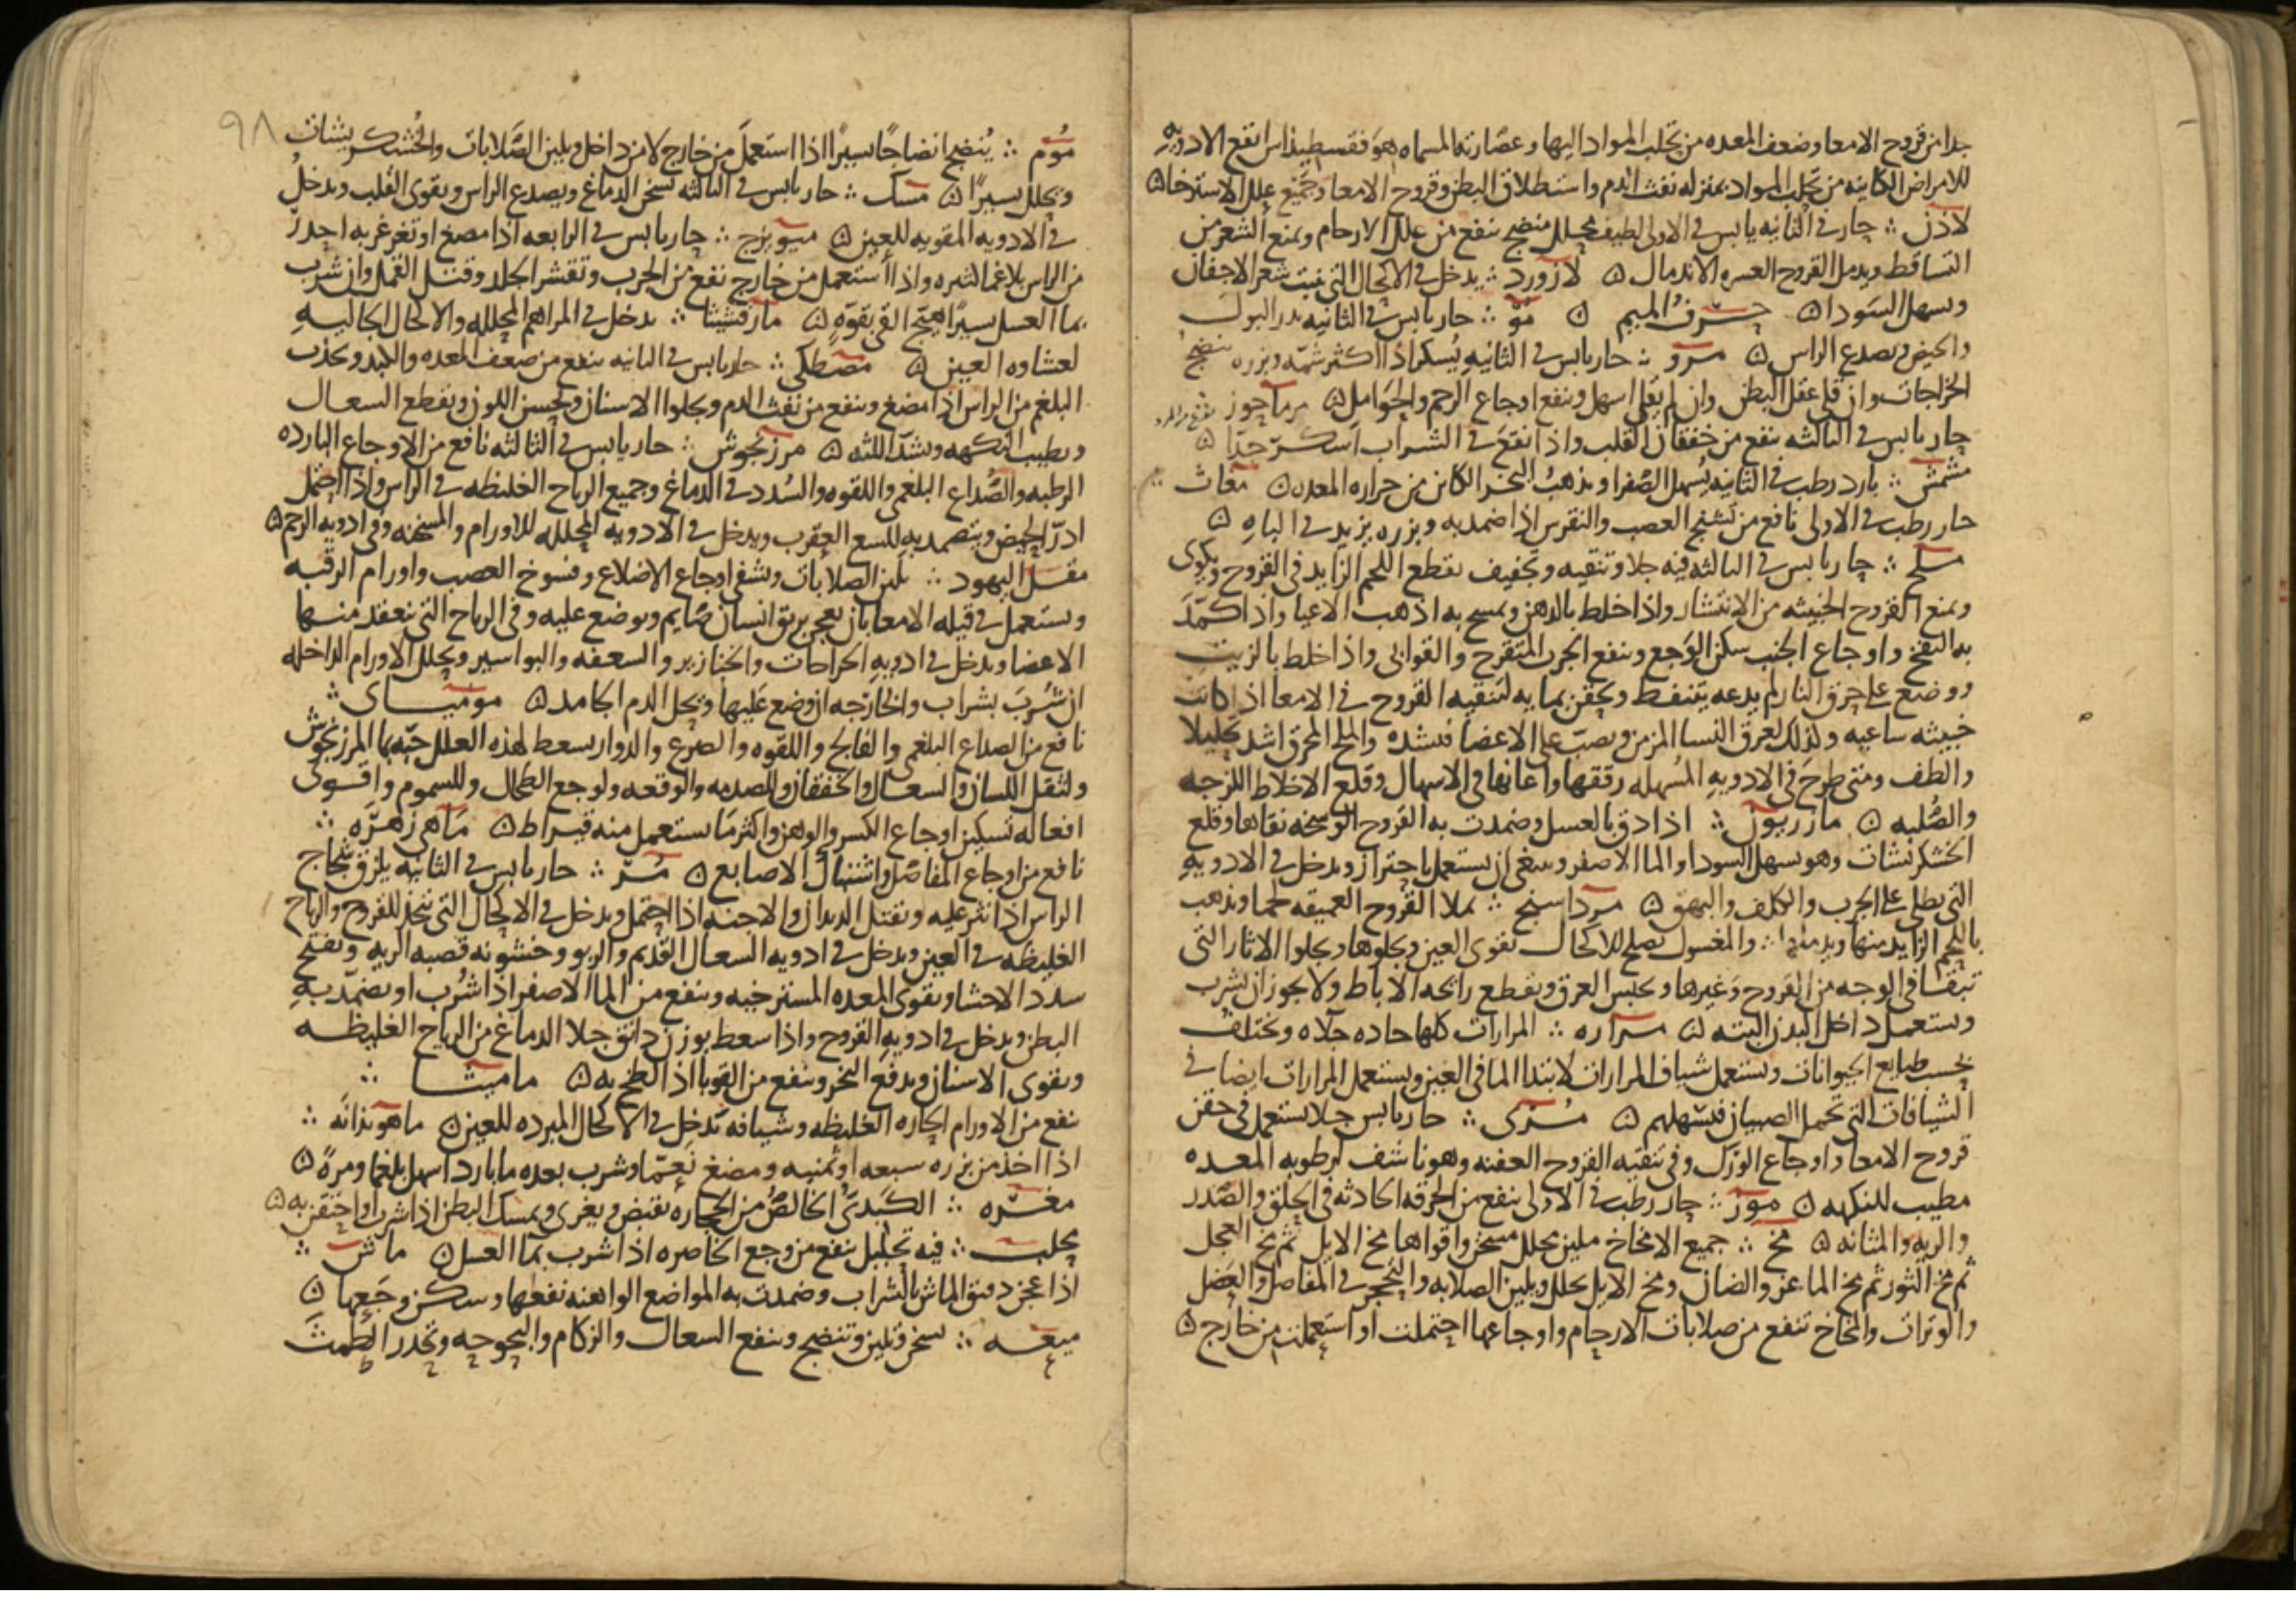 جدا من قروح الامعا وضعف المعده من تحلب المواد اليها وعصارته المسماه هوفقسطيذاس انفع الادويه
للامراض الكاينه من تحلب المواد بمنزله نفث الدم واستطلاق البطن وقروح الامعا وجميع علل الاسترخا ۞
لاذن ∴ حار في الثانيه يابس في الاولى لطيف محلل منضج ينفع من علل الارحام ويمنع الشعر من
التساقط ويدمل القروح العسره الاندمال ۞ لازورد ∴ يدخل في الاكحال التي تنبت شعر الاجفان
ويسهل السودا ۞ حرف الميم ۞ مو ∴ حار يابس في الثانيه يدر البول
والحيض ويصدع الراس ۞ مرو ∴ حار يابس في الثانيه يسكر اذا اكثر شمه وبزره ينضج
الخراجات وان قلي عقل البطن وان لم يقلى اسهل وينفع اوجاع الرحم والحوامل ۞ مرماحوز
حار يابس في الثالثه ينفع من خفقان القلب واذا نقع في الشراب اسكر جدا ۞
مشمش ∴ بارد رطب في الثانيه يسهل الصفرا ويذهب البخر الكاين من حراره المعده ۞ مغاث ∴
حار رطب في الاولى نافع من تشنج العصب والنقرس اذا ضمد به وبزره يزيد في الباه ۞
ملح ∴ حار يابس في الثالثه فيه جلا وتنقيه وتجفيف يقطع اللحم الزايد في القروح ويكوى
ويمنع القروح الخبيثه من الانتشار واذا خلط بالدهن وتمسح به اذهب الاعيا واذا كمد
به النفخ واوجاع الجنب سكن الوجع وينفع الجرب المتقرح والقوابي واذا خلط بالزيت
ووضع على حرق النار لم يدعه يتنفط ويحقن بمايه لتنقيه القروح في الامعا اذا كانت
خبيثه ساعيه وكذلك لعرق النسا المزمن ويصب على الاعضا فيشده والملح المحرق اشد تحليلا
والطف ومتى طرح في الادويه المسهله رققها واعانها في الاسهال وقلع الاخلاط اللزجه
والصلبه ۞ مازريون ∴ اذا دق بالعسل وضمدت به القروح الوسخه نقاها وقلع
الخشكريشات وهو يسهل السودا والما الاصفر وينبغي ان يستعمل باحتراز ويدخل في الادويه
التي تطلى على الجرب والكلف والبهق ۞ مرداسنج ∴ يملا القروح العميقه لحما ويذهب
باللحم الزايد منها ويدملها ∴ والمغسول يصلح للاكحال يقوى العين ويجلوها ويجلوا الاثار التي
تبقا في الوجه من القروح وغيرها ويحبس العرق ويقطع رائحه الاباط ولا يجوز ان يشرب
ويستعمل داخل البدن البته ۞ مراره ∴ المرارات كلها حاده جلاه وتختلف
بحسب طبايع الحيوانات ويستعمل شياف المرارات لابتدا الما في العين ويستعمل المرارات ايضا في
الشيافات التي تحمل الصبيان فيسهلهم ۞ مري ∴ حار يابس جلا يستعمل في حقن
قروح الامعا واوجاع الورك وفي تنقيه القروح العفنه وهو ناشف لرطوبه المعده
مطيب للنكهه ۞ موز ∴ حار رطب في الاولى ينفع من الحرقه الحادثه في الحلق والصدر
والريه والمثانه ۞ مخ ∴ جميع الامخاخ ملين محلل مسخن واقواها مخ الايل ثم مخ العجل
ثم مخ الثور ثم مخ الماعز والضان ومخ الايل يحلل ويلين الصلابه والتحجر في المفاصل والعضل
والوترات والمخاخ تنفع من صلابات الارحام واوجاعها احتملت او استعملت من خارج ۞
٩٨
موم ∴ ينضج انضاجا يسيرا اذا استعمل من خارج لا من داخل ويلين الصلابات والخشكريشات
ويحلل يسيرا ۞ مسك ∴ حار يابس في الثالثه يسخن الدماغ ويصدع الراس ويقوى القلب ويدخل
في الادويه المقويه للعين ۞ ميويزج ∴ حار يابس في الرابعه اذا مضغ او تغرغر به احدر
من الراس بلاغما كثيره واذا استعمل من خارج نفع من الجرب وتقشر الجلد وقتل القمل وان شرب
بما العسل يسيرا هيج القي بقوه ۞ مارقشيثا ∴ يدخل في المراهم المحلله والاكحال الجاليه
لغشاوه العين ۞ مصطكى ∴ حار يابس في الثانيه ينفع من ضعف المعده والكبد ويجذب
البلغم من الراس اذا مضغ وينفع من نفث الدم ويجلوا الاسنان ويحسن اللون ويقطع السعال
ويطيب النكهه ويشد اللثه ۞ مرزنجوش ∴ حار يابس في الثالثه نافع من الاوجاع البارده
الرطبه والصداع البلغمي واللقوه والسدد في الدماغ وجميع الرياح الغليظه في الراس واذا احتمل
ادر الحيض ويتضمد به للسع العقرب ويدخل في الادويه المحلله للاورام والمسخنه وفي ادويه الرحم ۞
مقل اليهود ∴ يلين الصلابات ويشفي اوجاع الاضلاع وفسوخ العصب واورام الرقبه
ويستعمل في قيله الامعا بان يعجن بريق انسان صايم ويوضع عليه وفي الرياح التي تنعقد منها
الاعضا ويدخل في ادويه الجراحات والخنازير والسعفه والبواسير ويحلل الاورام الداخله
ان شرب بشراب والخارجه ان وضع عليها ويحل الدم الجامد ۞ موميـــاى ∴
نافع من الصداع البلغمي والفالج واللقوه والصرع والدوار يسعط لهذه العلل حبه بما المرزنجوش
ولثقل اللسان والسعال والخفقان والصدمه والوقعه ولوجع الطحال وللسموم واقوى
افعاله تسكين اوجاع الكسر والوهن واكثر ما يستعمل منه قيراط ۞ ماهي زهره ∴
نافع من اوجاع المفاصل واشتباك الاصابع ۞ مر ∴ حار يابس في الثانيه يلزق شجاج
الراس اذا نثر عليه ويقتل الديدان والاجنه اذا احتمل ويدخل في الاكحال التي تتخذ للقروح والرياح
الغليظه في العين ويدخل في ادويه السعال القديم والربو وخشونه قصبه الريه ويفتح
سدد الاحشا ويقوى المعده المسترخيه وينفع من الما الاصفر اذا شرب او يضمد به
البطن ويدخل في ادويه القروح واذا سعط بوزن دانق جلا الدماغ من الرياح الغليظه
ويقوى الاسنان ويدفع البخر وينفع من القوبا اذا لطخ به ۞ ماميثا ∴
ينفع من الاورام الحاره الغليظه وشيافه تدخل في الاكحال المبرده للعين ۞ ماهوبذانه ∴
اذا اخذ من بزره سبعه او ثمنيه ومضغ نعما وشرب بعده ما بارد اسهل بلغما ومره ۞
مغره ∴ الكبدي الخالص من الحجاره يقبض ويغرى ويمسك البطن اذا شرب او احتقن به ۞
محلب ∴ فيه تحليل ينفع من وجع الخاصره اذا شرب بما العسل ۞ ماش ∴
اذا عجن دقيق الماش بالشراب وضمدت به المواضع الواهنه نفعها وسكن وجعها ۞
ميعه ∴ يسخن ويلين وتنضج وينفع السعال والزكام والبحوحه وتحدر الطمث